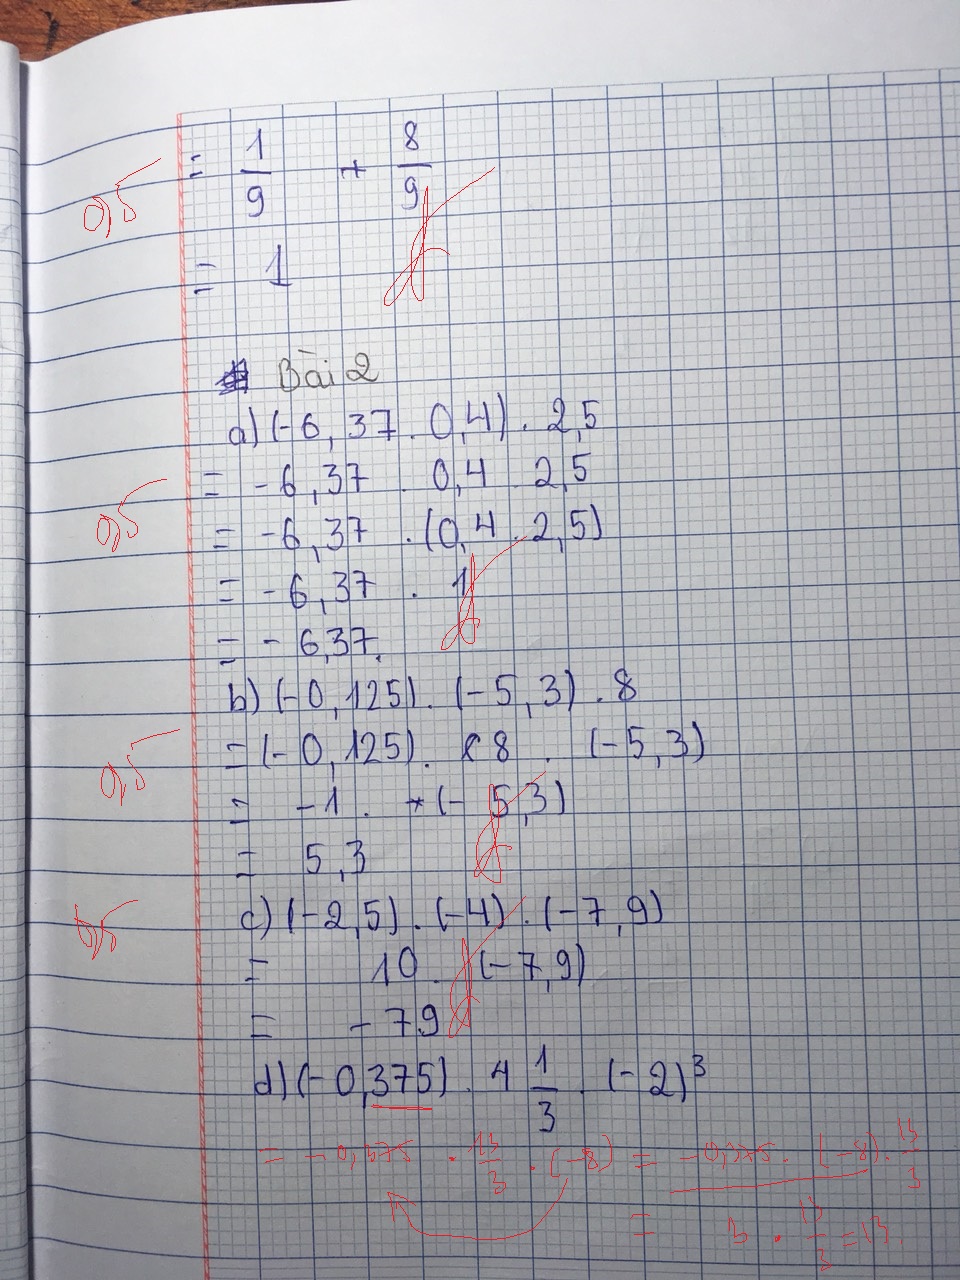 0,5
= 1/9 + 8/9
= 1
Bài 2
a) (-6,37 . 0,4) . 2,5
= -6,37 . 0,4 . 2,5
0,5
= -6,37 . (0,4 . 2,5)
= -6,37 . 1
= -6,37.
b) (-0,125) . (-5,3) . 8
= (-0,125) . 8 . (-5,3)
0,5
= -1 . (-5,3)
= 5,3
0,5
c) (-2,5) . (-4) . (-7,9)
= 10 . (-7,9)
= -79
d) (-0,375) . 4 1/3 . (-2)³
= -0,375 . 13/3 . (-8) = -0,375 . (-8) . 13/3
= 3 . 13/3 = 13.